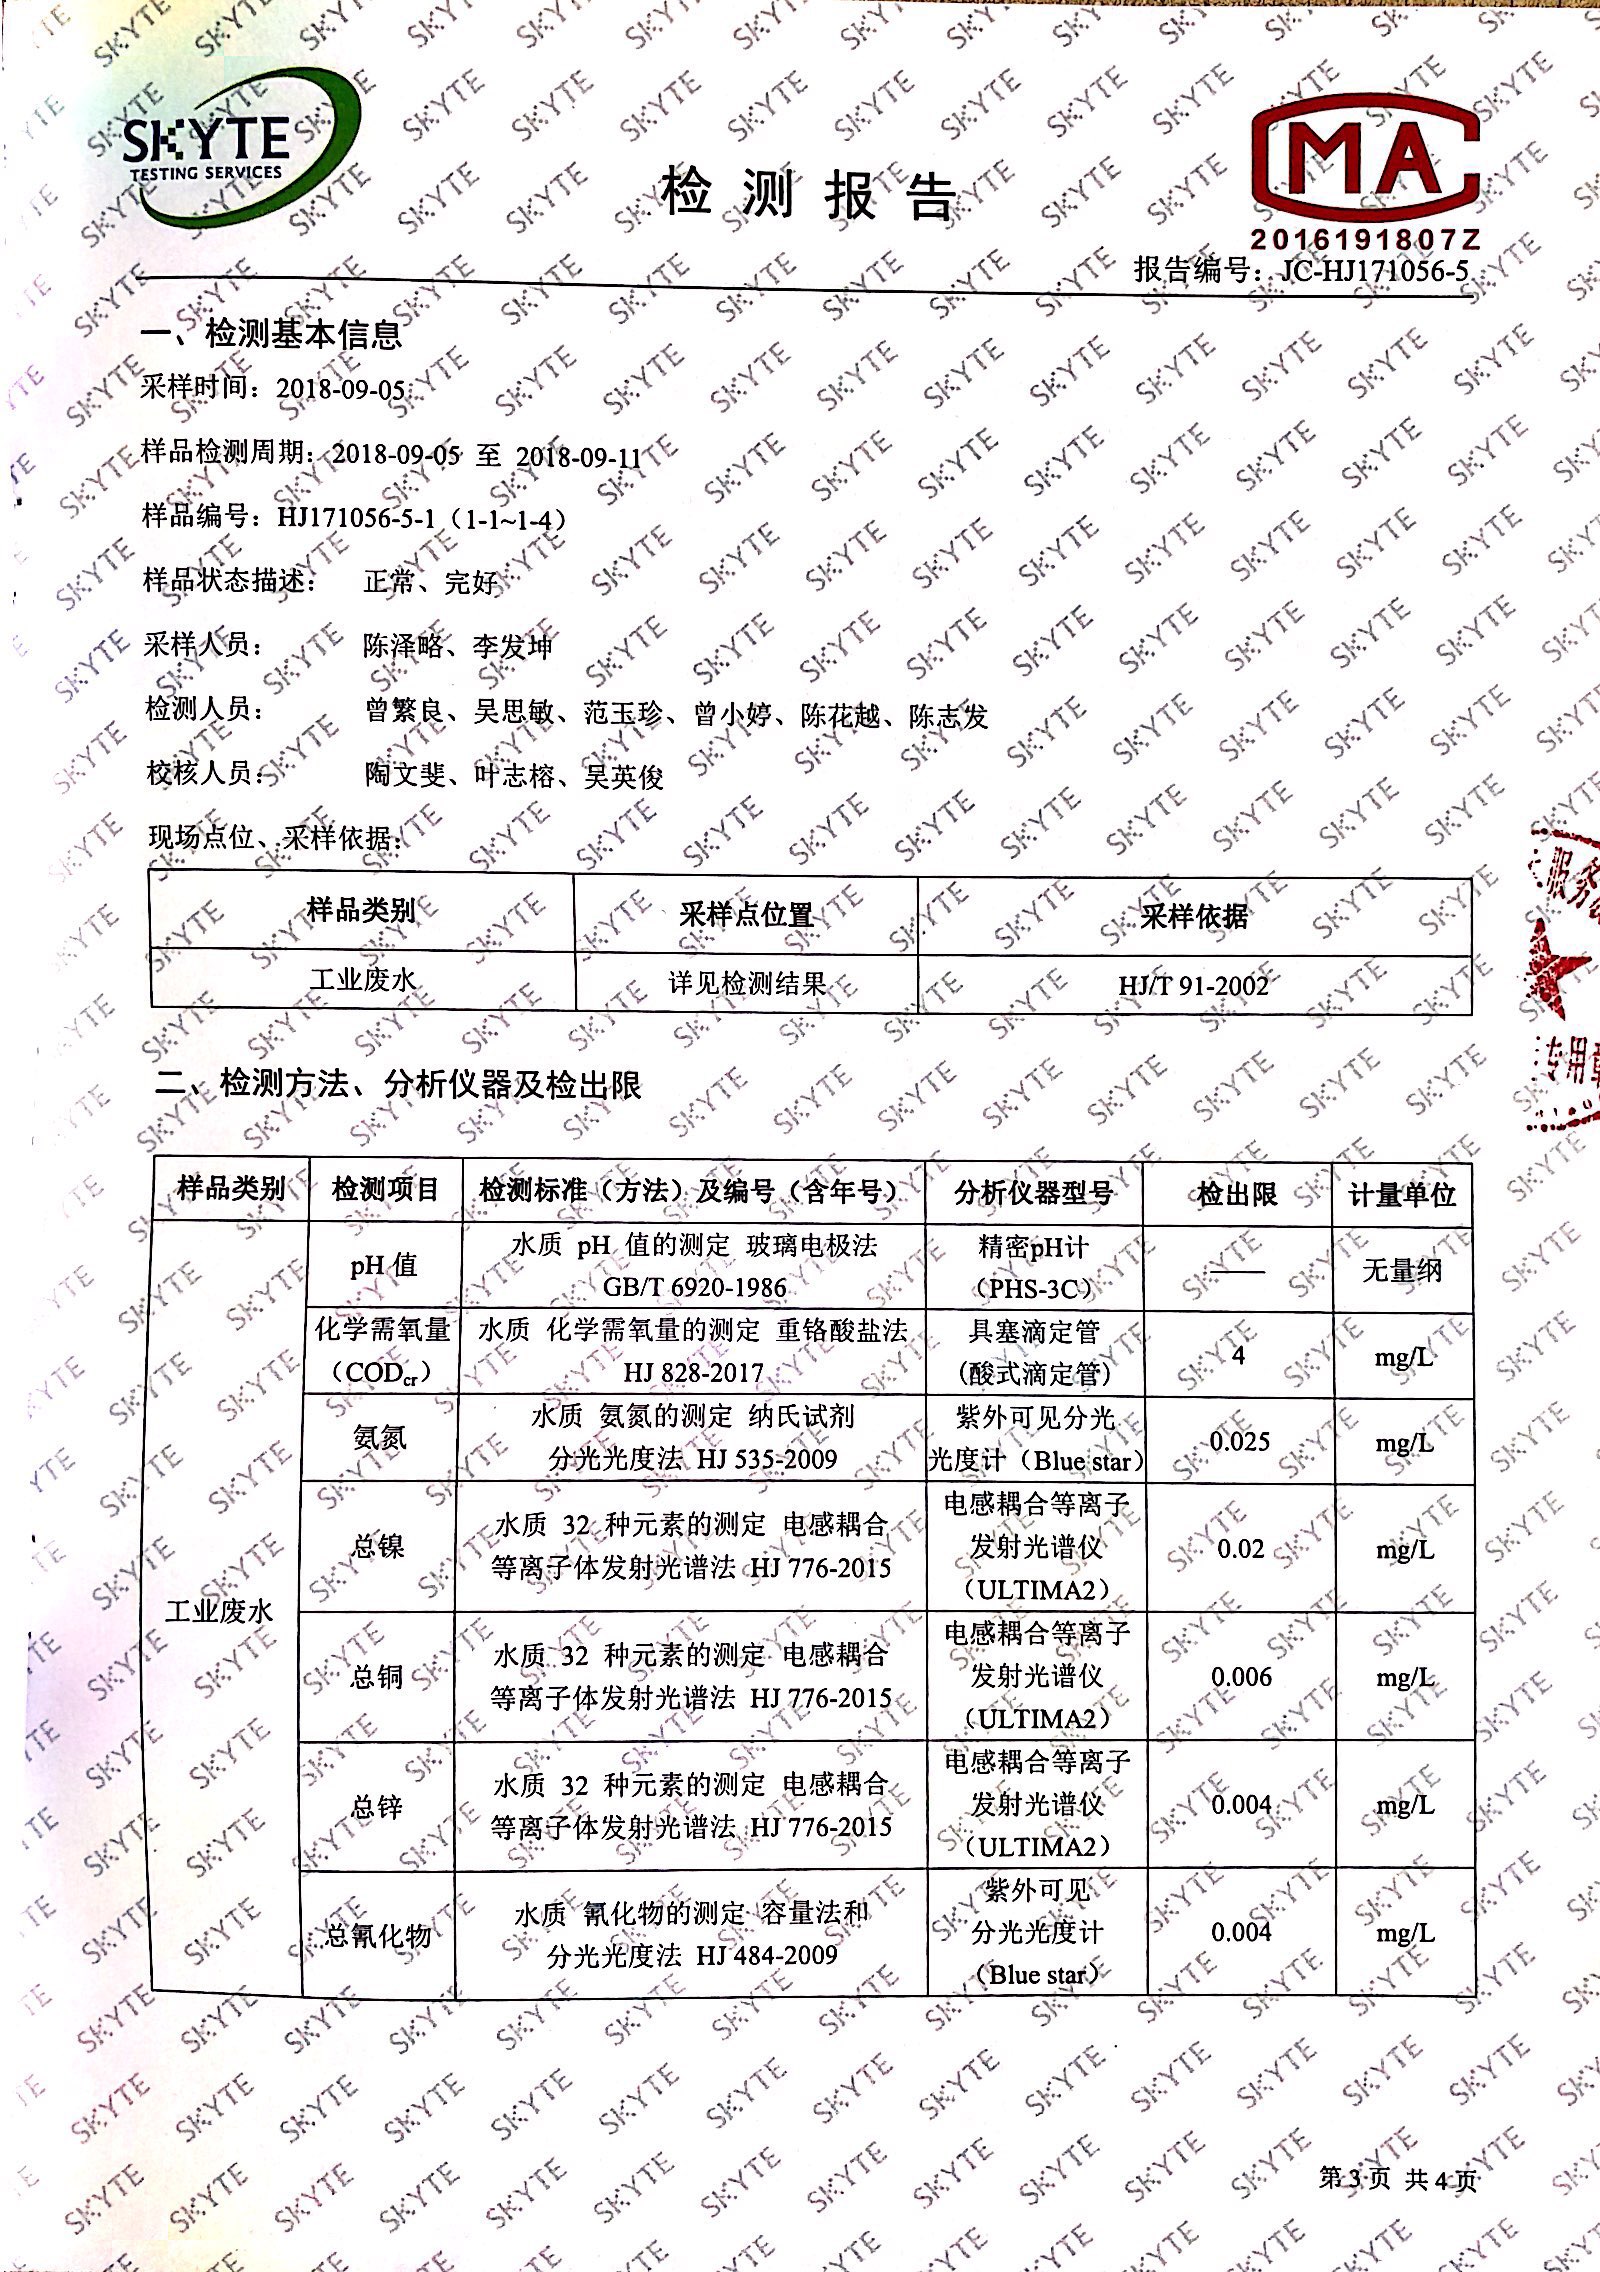 SKYTE
TESTING SERVICES
检测报告
CMA
2016191807Z
报告编号：JC-HJ171056-5
一、检测基本信息
采样时间：2018-09-05
样品检测周期：2018-09-05 至 2018-09-11
样品编号：HJ171056-5-1（1-1~1-4）
样品状态描述： 正常、完好
采样人员： 陈泽略、李发坤
检测人员： 曾繁良、吴思敏、范玉珍、曾小婷、陈花越、陈志发
校核人员： 陶文斐、叶志榕、吴英俊
现场点位、采样依据：
样品类别 采样点位置 采样依据
工业废水 详见检测结果 HJ/T 91-2002
服务
专用章
二、检测方法、分析仪器及检出限
样品类别 检测项目 检测标准（方法）及编号（含年号） 分析仪器型号 检出限 计量单位
工业废水
pH 值
水质 pH 值的测定 玻璃电极法
GB/T 6920-1986
精密pH计
（PHS-3C）
——
无量纲
化学需氧量
（CODcr）
水质 化学需氧量的测定 重铬酸盐法
HJ 828-2017
具塞滴定管
(酸式滴定管)
4
mg/L
氨氮
水质 氨氮的测定 纳氏试剂
分光光度法 HJ 535-2009
紫外可见分光
光度计（Blue star）
0.025
mg/L
总镍
水质 32 种元素的测定 电感耦合
等离子体发射光谱法 HJ 776-2015
电感耦合等离子
发射光谱仪
（ULTIMA2）
0.02
mg/L
总铜
水质 32 种元素的测定 电感耦合
等离子体发射光谱法 HJ 776-2015
电感耦合等离子
发射光谱仪
（ULTIMA2）
0.006
mg/L
总锌
水质 32 种元素的测定 电感耦合
等离子体发射光谱法 HJ 776-2015
电感耦合等离子
发射光谱仪
（ULTIMA2）
0.004
mg/L
总氰化物
水质 氰化物的测定 容量法和
分光光度法 HJ 484-2009
紫外可见
分光光度计
（Blue star）
0.004
mg/L
第 3 页 共 4 页